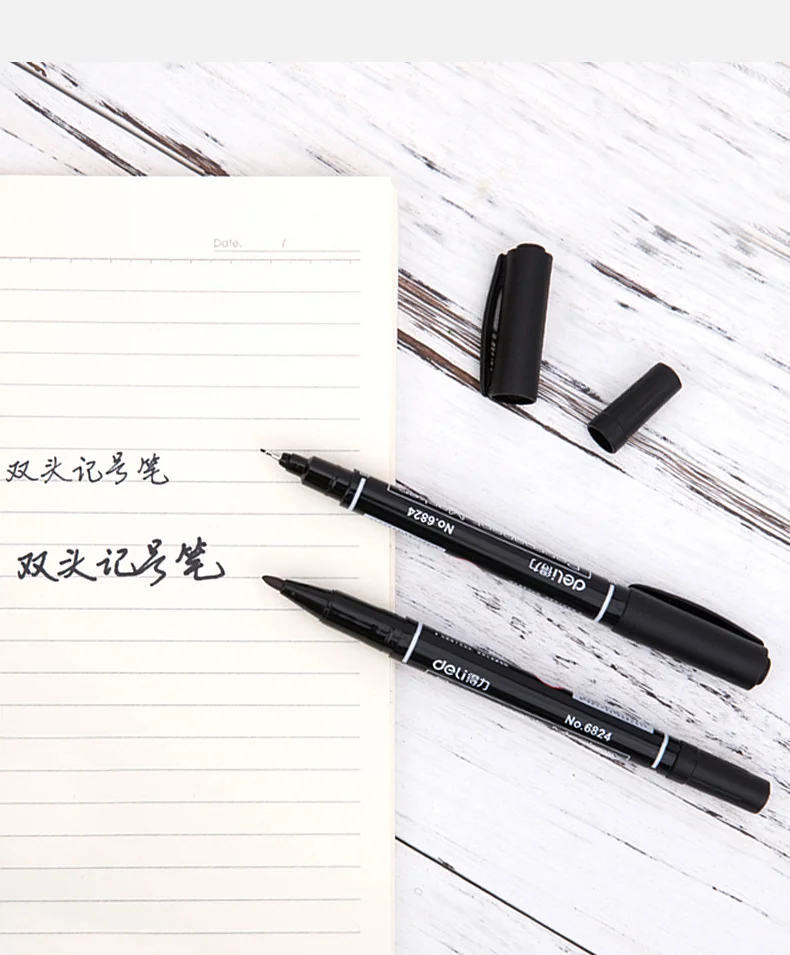 Date. /
双头记号笔
双头记号笔
No.6824
deli得力
deli得力
No.6824